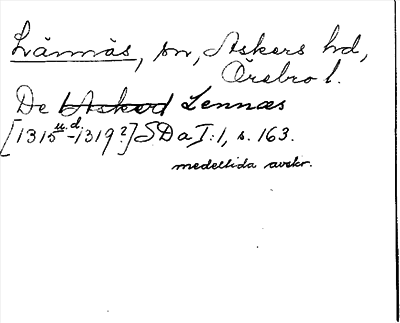 Lännäs, sn, Askers hd,
Örebro l.
De Lennæs
[1315 u.d. -1319?] SDa I:1, s. 163.
medeltida avskr.